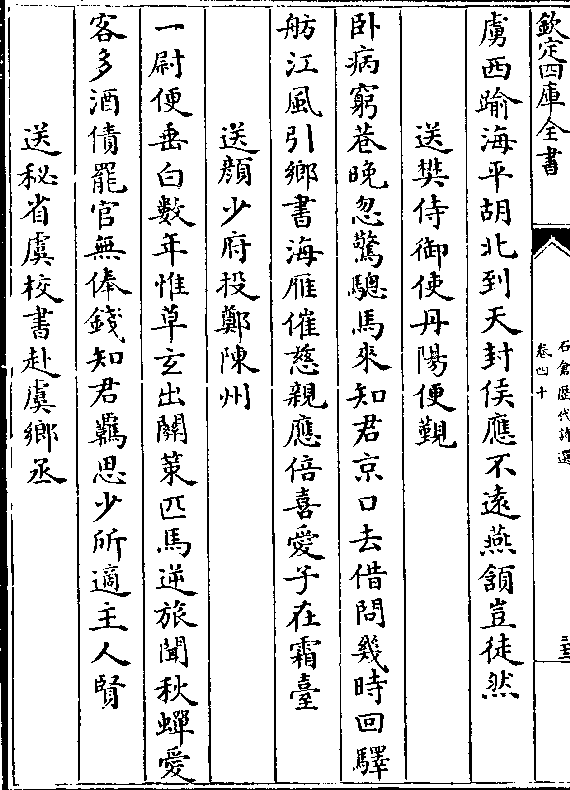 欽定四庫全書
石倉歷代詩選
卷四十
虜西踰海平胡北到天封侯應不遠燕頷豈徒然
送樊侍御使丹陽便覲
卧病窮巷晚忽驚驄馬來知君京口去借問幾時回驛
舫江風引鄉書海雁催慈親應倍喜愛子在霜臺
送顔少府投鄭陳州
一尉便垂白數年惟草玄出關策匹馬逆旅聞秋蟬愛
客多酒債罷官無俸錢知君羈思少所適主人賢
送秘省虞校書赴虞鄉丞